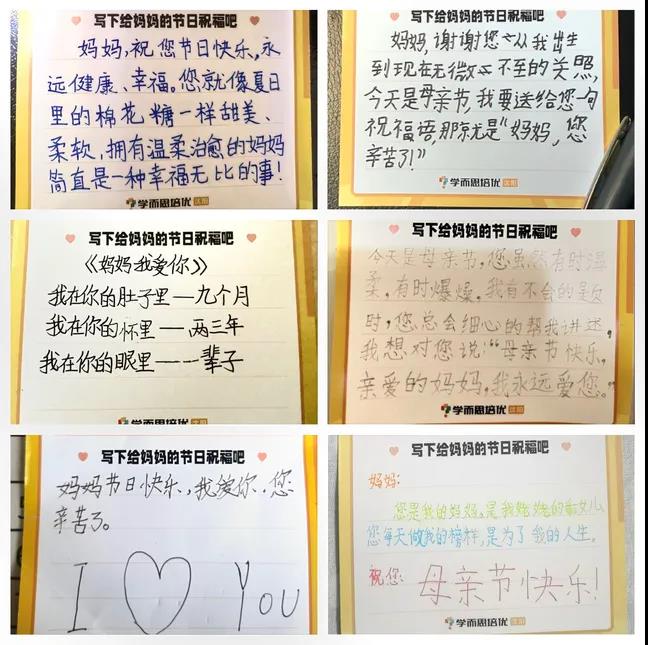 写下给妈妈的节日祝福吧
妈妈,祝您节日快乐,永
远健康、幸福。您就像夏日
里的棉花糖一样甜美、
柔软,拥有温柔治愈的妈妈
简直是一种幸福无比的事!
学而思培优
写下给妈妈的节日祝福吧
妈妈,谢谢您从我出生
到现在无微不至的关照,
今天是母亲节,我要送给您一句
祝福语,那就是“妈妈,您
辛苦了!”
学而思培优
写下给妈妈的节日祝福吧
《妈妈我爱你》
我在你的肚子里——九个月
我在你的怀里——两三年
我在你的眼里——一辈子
学而思培优
写下给妈妈的节日祝福吧
今天是母亲节,您虽然有时温
柔,有时爆燥,我有不会的题
时,您总会细心的帮我讲述,
我想对您说:“母亲节快乐,
亲爱的妈妈,我永远爱您。”
学而思培优
写下给妈妈的节日祝福吧
妈妈节日快乐,我爱你,您
辛苦了。
I You
写下给妈妈的节日祝福吧
妈妈:
您是我的妈妈,是我姥姥的女儿
您每天做我的榜样,是为了我的人生。
祝您:母亲节快乐!
学而思培优